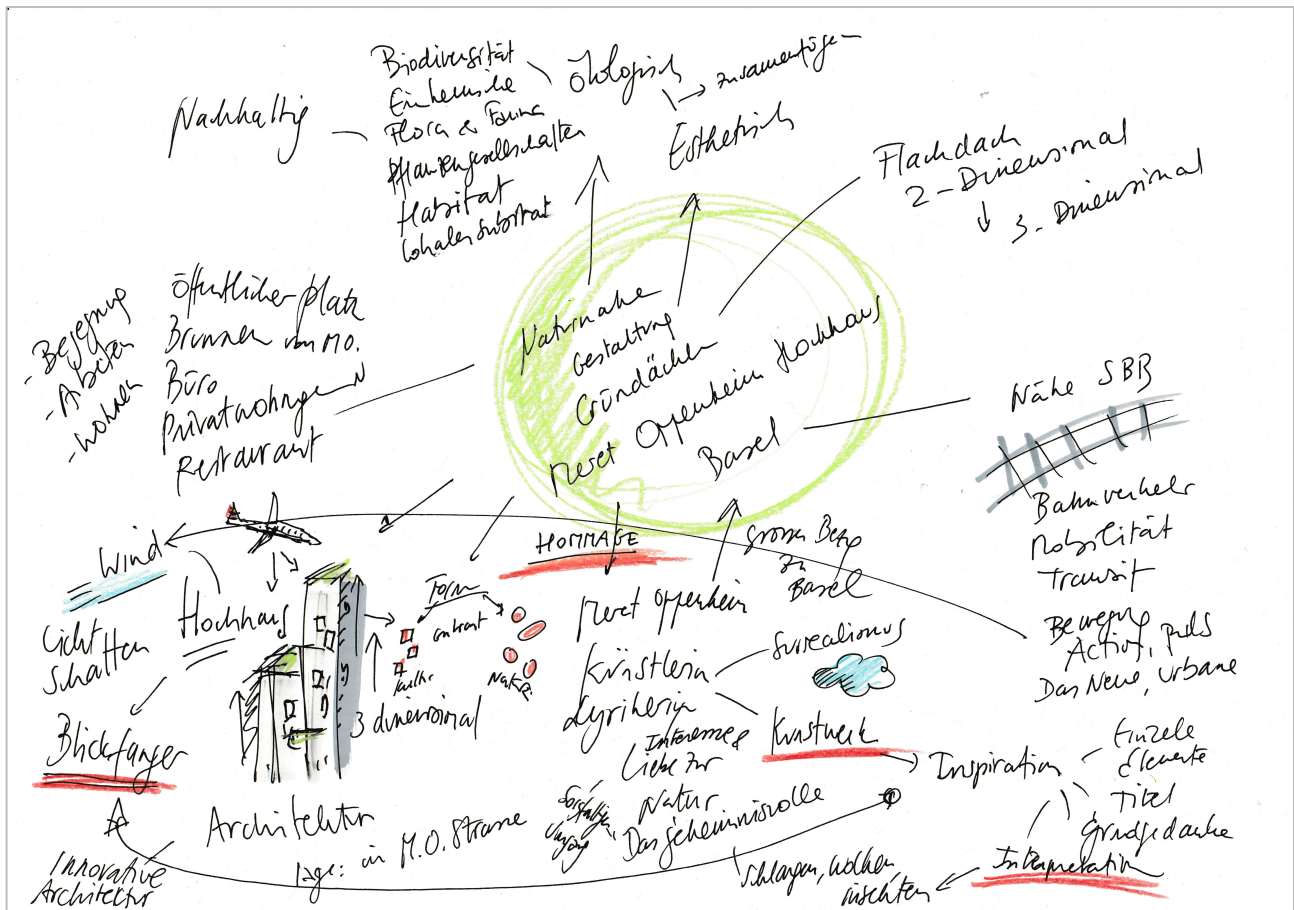 Nachhaltig
Biodiversität
Einheimische
Flora & Fauna
Pflanzengesellschaften
Habitat
Lokales Substrat
Ökologisch
→ zusamenfügen
Esthetisch
Flachdach
2-Dimensional
↓
3-Dimensional
- Begegnung
- Arbeiten
- Wohnen
Öffentlicher Platz
Brunnen von M.O.
Büro
Privatwohnungen
Restaurant
Naturnahe
Gestaltung
Gründächer
Meret Oppenheim Hochhaus
Basel
Nähe SBB
Bahnverkehr
Mobilität
Transit
Bewegung
Action, Puls
Das Neue, Urbane
Wind
Licht
Schatten
Hochhaus
Blickfänger
Form
contrast
Kultur
Natur
3 dimensional
Architektur
Innovative
Architektur
Lage: in M.O. Strasse
HOMMAGE
Grosser Bezug
zu
Basel
Meret Oppenheim
Künstlerin
Lyrikerin
Surrealismus
Kunstwerk
Interesse &
Liebe zur
Natur
Sorgfältiger
Umgang
Das Geheimnisvolle
Schlangen, Wolken
Inspiration
Einzele
Elemente
Titel
Grundgedanke
Interpretation